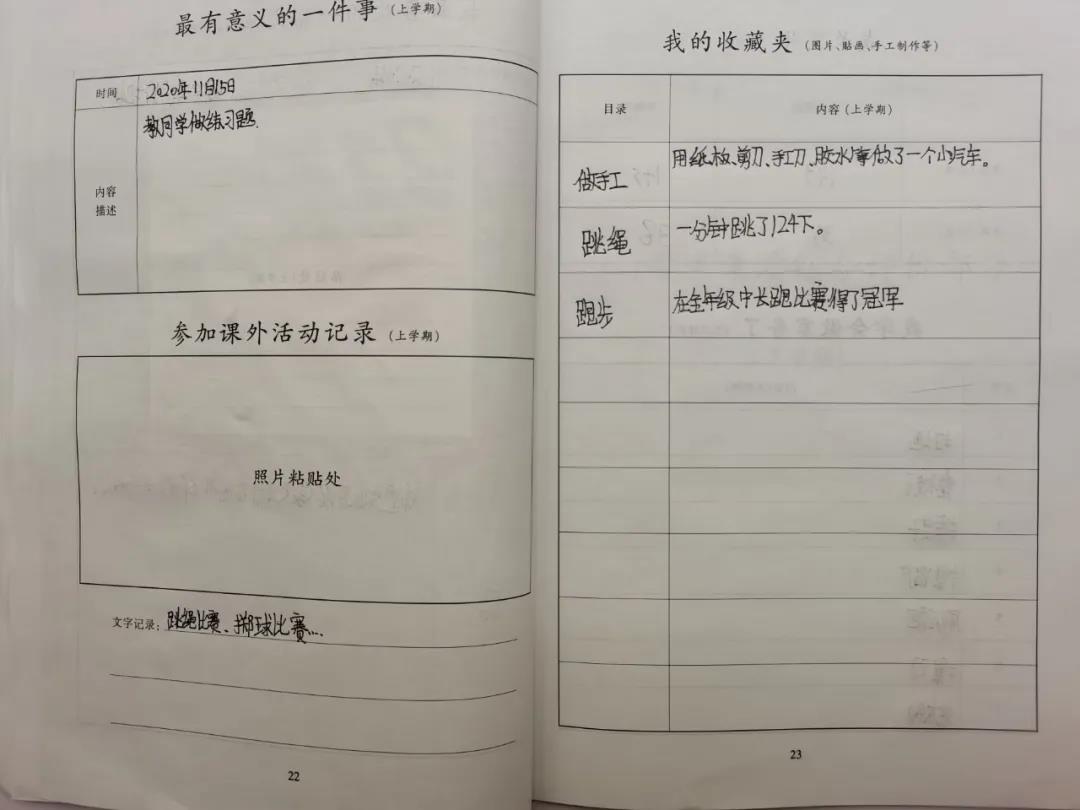 最有意义的一件事（上学期）
时间 2020年11月15日
教同学做练习题.
内容
描述
参加课外活动记录（上学期）
照片粘贴处
文字记录：跳绳比赛、掷球比赛...
22
我的收藏夹（图片、贴画、手工制作等）
目录 内容（上学期）
做手工 用纸板、剪刀、手工刀、胶水等做了一个小汽车。
跳绳 一分钟跳了124下。
跑步 在全年级中长跑比赛得了冠军
23